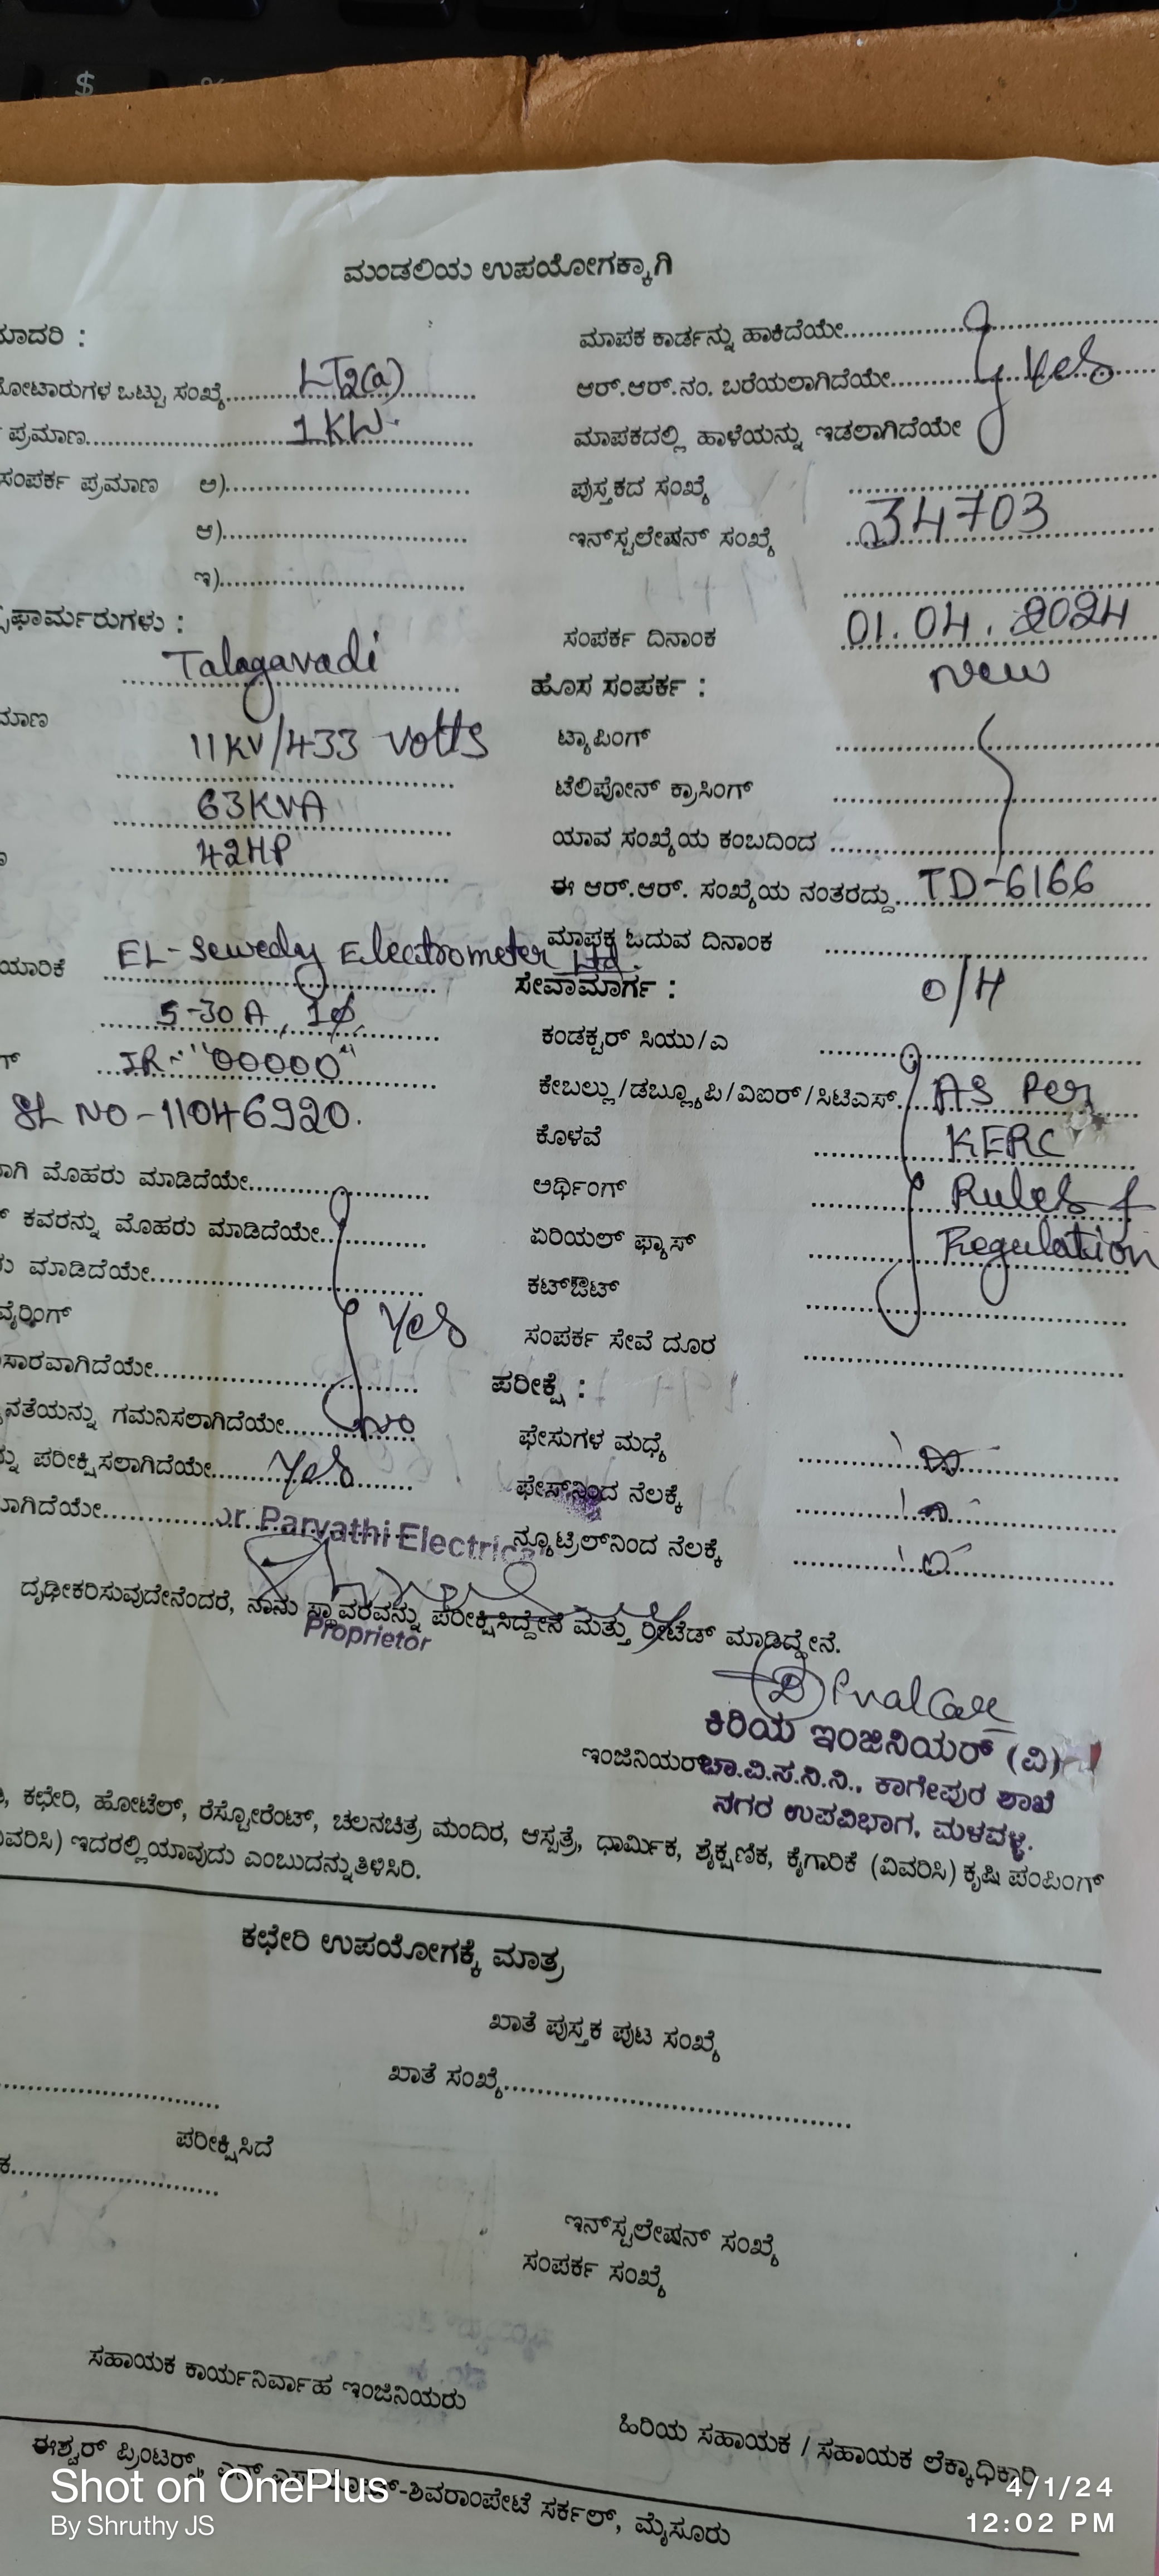 $
ಮಂಡಲಿಯ ಉಪಯೋಗಕ್ಕಾಗಿ
ಮಾದರಿ :
ಮೋಟಾರುಗಳ ಒಟ್ಟು ಸಂಖ್ಯೆ.......... LT2(a)
ಪ್ರಮಾಣ.......... 1 KW.
ಸಂಪರ್ಕ ಪ್ರಮಾಣ ಅ)..........
ಆ)..........
ಇ)..........
ಫಾರ್ಮರುಗಳು :
Talagavadi
ಮಾಣ 11KV/433 volts
63KVA
42HP
ಯಾರಿಕೆ EL-Sewedy Electrometer Ltd.
5-30 A, 1ф
IR - "00000"
SL NO - 11046920.
ಾಗಿ ಮೊಹರು ಮಾಡಿದೆಯೇ..........
ಕವರನ್ನು ಮೊಹರು ಮಾಡಿದೆಯೇ..........
ಮಾಡಿದೆಯೇ..........
ವೈರಿಂಗ್ Yes
ಸಾರವಾಗಿದೆಯೇ..........
ನತೆಯನ್ನು ಗಮನಿಸಲಾಗಿದೆಯೇ.......... No
ಪರೀಕ್ಷಿಸಲಾಗಿದೆಯೇ.......... Yes
ಲಾಗಿದೆಯೇ..........
ಮಾಪಕ ಕಾರ್ಡನ್ನು ಹಾಕಿದೆಯೇ..........
ಆರ್.ಆರ್.ನಂ. ಬರೆಯಲಾಗಿದೆಯೇ.......... Yes
ಮಾಪಕದಲ್ಲಿ ಹಾಳೆಯನ್ನು ಇಡಲಾಗಿದೆಯೇ
ಪುಸ್ತಕದ ಸಂಖ್ಯೆ ..........
ಇನ್‌ಸ್ಟಲೇಷನ್ ಸಂಖ್ಯೆ 34703
ಸಂಪರ್ಕ ದಿನಾಂಕ 01.04.2024
ಹೊಸ ಸಂಪರ್ಕ : New
ಟ್ಯಾಪಿಂಗ್ ..........
ಟೆಲಿಪೋನ್ ಕ್ರಾಸಿಂಗ್ ..........
ಯಾವ ಸಂಖ್ಯೆಯ ಕಂಬದಿಂದ ..........
ಈ ಆರ್.ಆರ್. ಸಂಖ್ಯೆಯ ನಂತರದ್ದು.... TD-6166
ಮಾಪಕ ಓದುವ ದಿನಾಂಕ ..........
ಸೇವಾಮಾರ್ಗ : O/H
ಕಂಡಕ್ಟರ್ ಸಿಯು/ಎ ..........
ಕೇಬಲ್ಲು/ಡಬ್ಲ್ಯೂಪಿ/ವಿಐರ್/ಸಿಟಿಎಸ್. As Per
ಕೊಳವೆ KERC
ಅರ್ಥಿಂಗ್ Rules &
ಏರಿಯಲ್ ಫ್ಯಾಸ್ Regulation
ಕಟ್‌ಔಟ್ ..........
ಸಂಪರ್ಕ ಸೇವೆ ದೂರ ..........
ಪರೀಕ್ಷೆ :
ಫೇಸುಗಳ ಮಧ್ಯೆ ..........
ಫೇಸ್‌ನಿಂದ ನೆಲಕ್ಕೆ ..........
ನ್ಯೂಟ್ರಲ್‌ನಿಂದ ನೆಲಕ್ಕೆ ..........
Parvathi Electric
ದೃಢೀಕರಿಸುವುದೇನೆಂದರೆ, ನಾನು ಸ್ಥಾವರವನ್ನು ಪರೀಕ್ಷಿಸಿದ್ದೇನೆ ಮತ್ತು ರೀಟೆಡ್ ಮಾಡಿದ್ದೇನೆ.
Proprietor
ಕಿರಿಯ ಇಂಜಿನಿಯರ್ (ವಿ)
ಇಂಜಿನಿಯರ್ ಚಾ.ವಿ.ಸ.ನಿ.ನಿ., ಕಾಗೇಪುರ ಶಾಖೆ
ನಗರ ಉಪವಿಭಾಗ, ಮಳವಳ್ಳಿ.
ಕಛೇರಿ, ಹೋಟೆಲ್, ರೆಸ್ಟೋರೆಂಟ್, ಚಲನಚಿತ್ರ ಮಂದಿರ, ಆಸ್ಪತ್ರೆ, ಧಾರ್ಮಿಕ, ಶೈಕ್ಷಣಿಕ, ಕೈಗಾರಿಕೆ (ವಿವರಿಸಿ) ಕೃಷಿ ಪಂಪಿಂಗ್
ವಿವರಿಸಿ) ಇದರಲ್ಲಿ ಯಾವುದು ಎಂಬುದನ್ನು ತಿಳಿಸಿರಿ.
ಕಛೇರಿ ಉಪಯೋಗಕ್ಕೆ ಮಾತ್ರ
ಖಾತೆ ಪುಸ್ತಕ ಪುಟ ಸಂಖ್ಯೆ
ಖಾತೆ ಸಂಖ್ಯೆ..........
ಪರೀಕ್ಷಿಸಿದೆ
ಇನ್‌ಸ್ಟಲೇಷನ್ ಸಂಖ್ಯೆ
ಸಂಪರ್ಕ ಸಂಖ್ಯೆ
ಸಹಾಯಕ ಕಾರ್ಯನಿರ್ವಾಹ ಇಂಜಿನಿಯರು
ಹಿರಿಯ ಸಹಾಯಕ / ಸಹಾಯಕ ಲೆಕ್ಕಾಧಿಕಾರಿ
ಈಶ್ವರ್ ಪ್ರಿಂಟರ್ಸ್, ಶಿವರಾಂಪೇಟೆ ಸರ್ಕಲ್, ಮೈಸೂರು
Shot on OnePlus
By Shruthy JS
4/1/24
12:02 PM